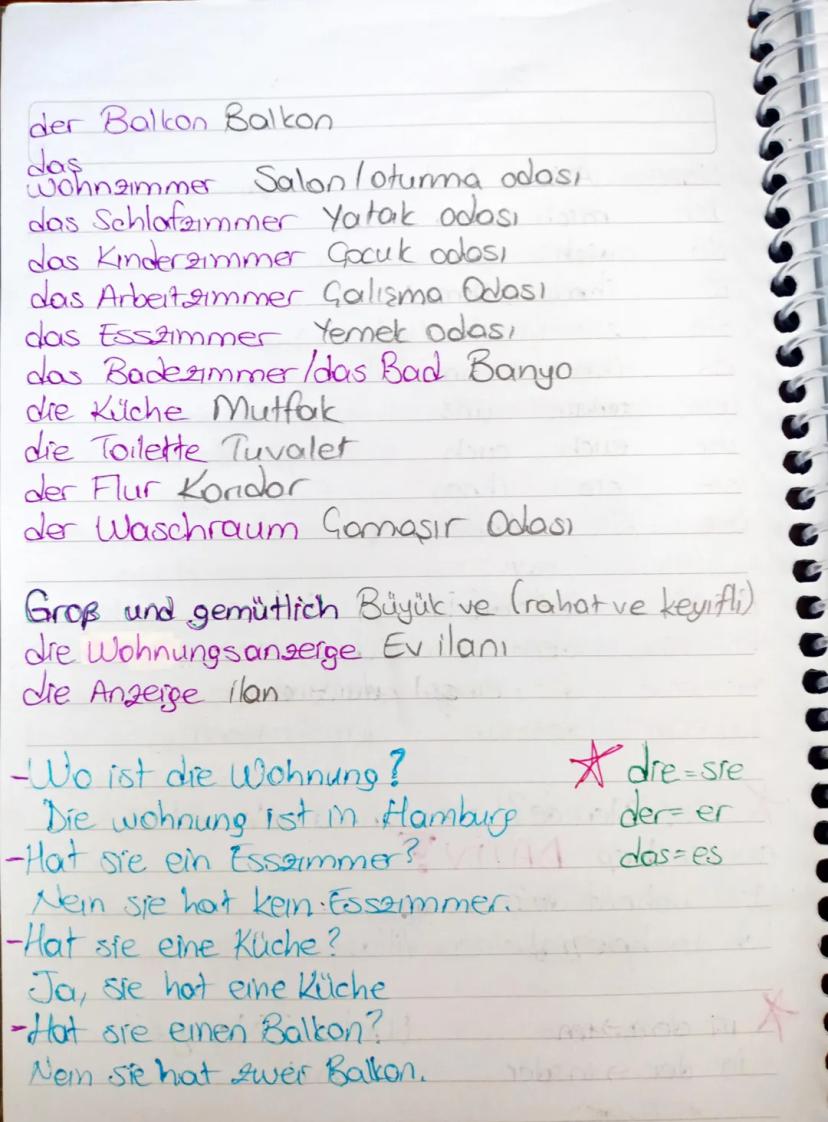 der Balkon Balkon
das
Wohnzimmer Salon/oturma odası
das Schlafzimmer Yatak odası
das Kinderzimmer Çocuk odası
das Arbeitzimmer Çalışma Odası
das Esszimmer Yemek odası
das Badezimmer/das Bad Banyo
die Küche Mutfak
die Toilette Tuvalet
der Flur Koridor
der Waschraum Çamaşır Odası
Groß und gemütlich Büyük ve (rahat ve keyifli)
die Wohnungsanzeige Ev ilanı
die Anzeige ilan
-Wo ist die Wohnung?
Die wohnung ist in Hamburg
-Hat sie ein Esszimmer?
Nein sie hat kein Esszimmer.
-Hat sie eine Küche?
Ja, sie hat eine Küche
-Hat sie einen Balkon?
Nein sie hat zwei Balkon.
☆ die=sie
der=er
das=es